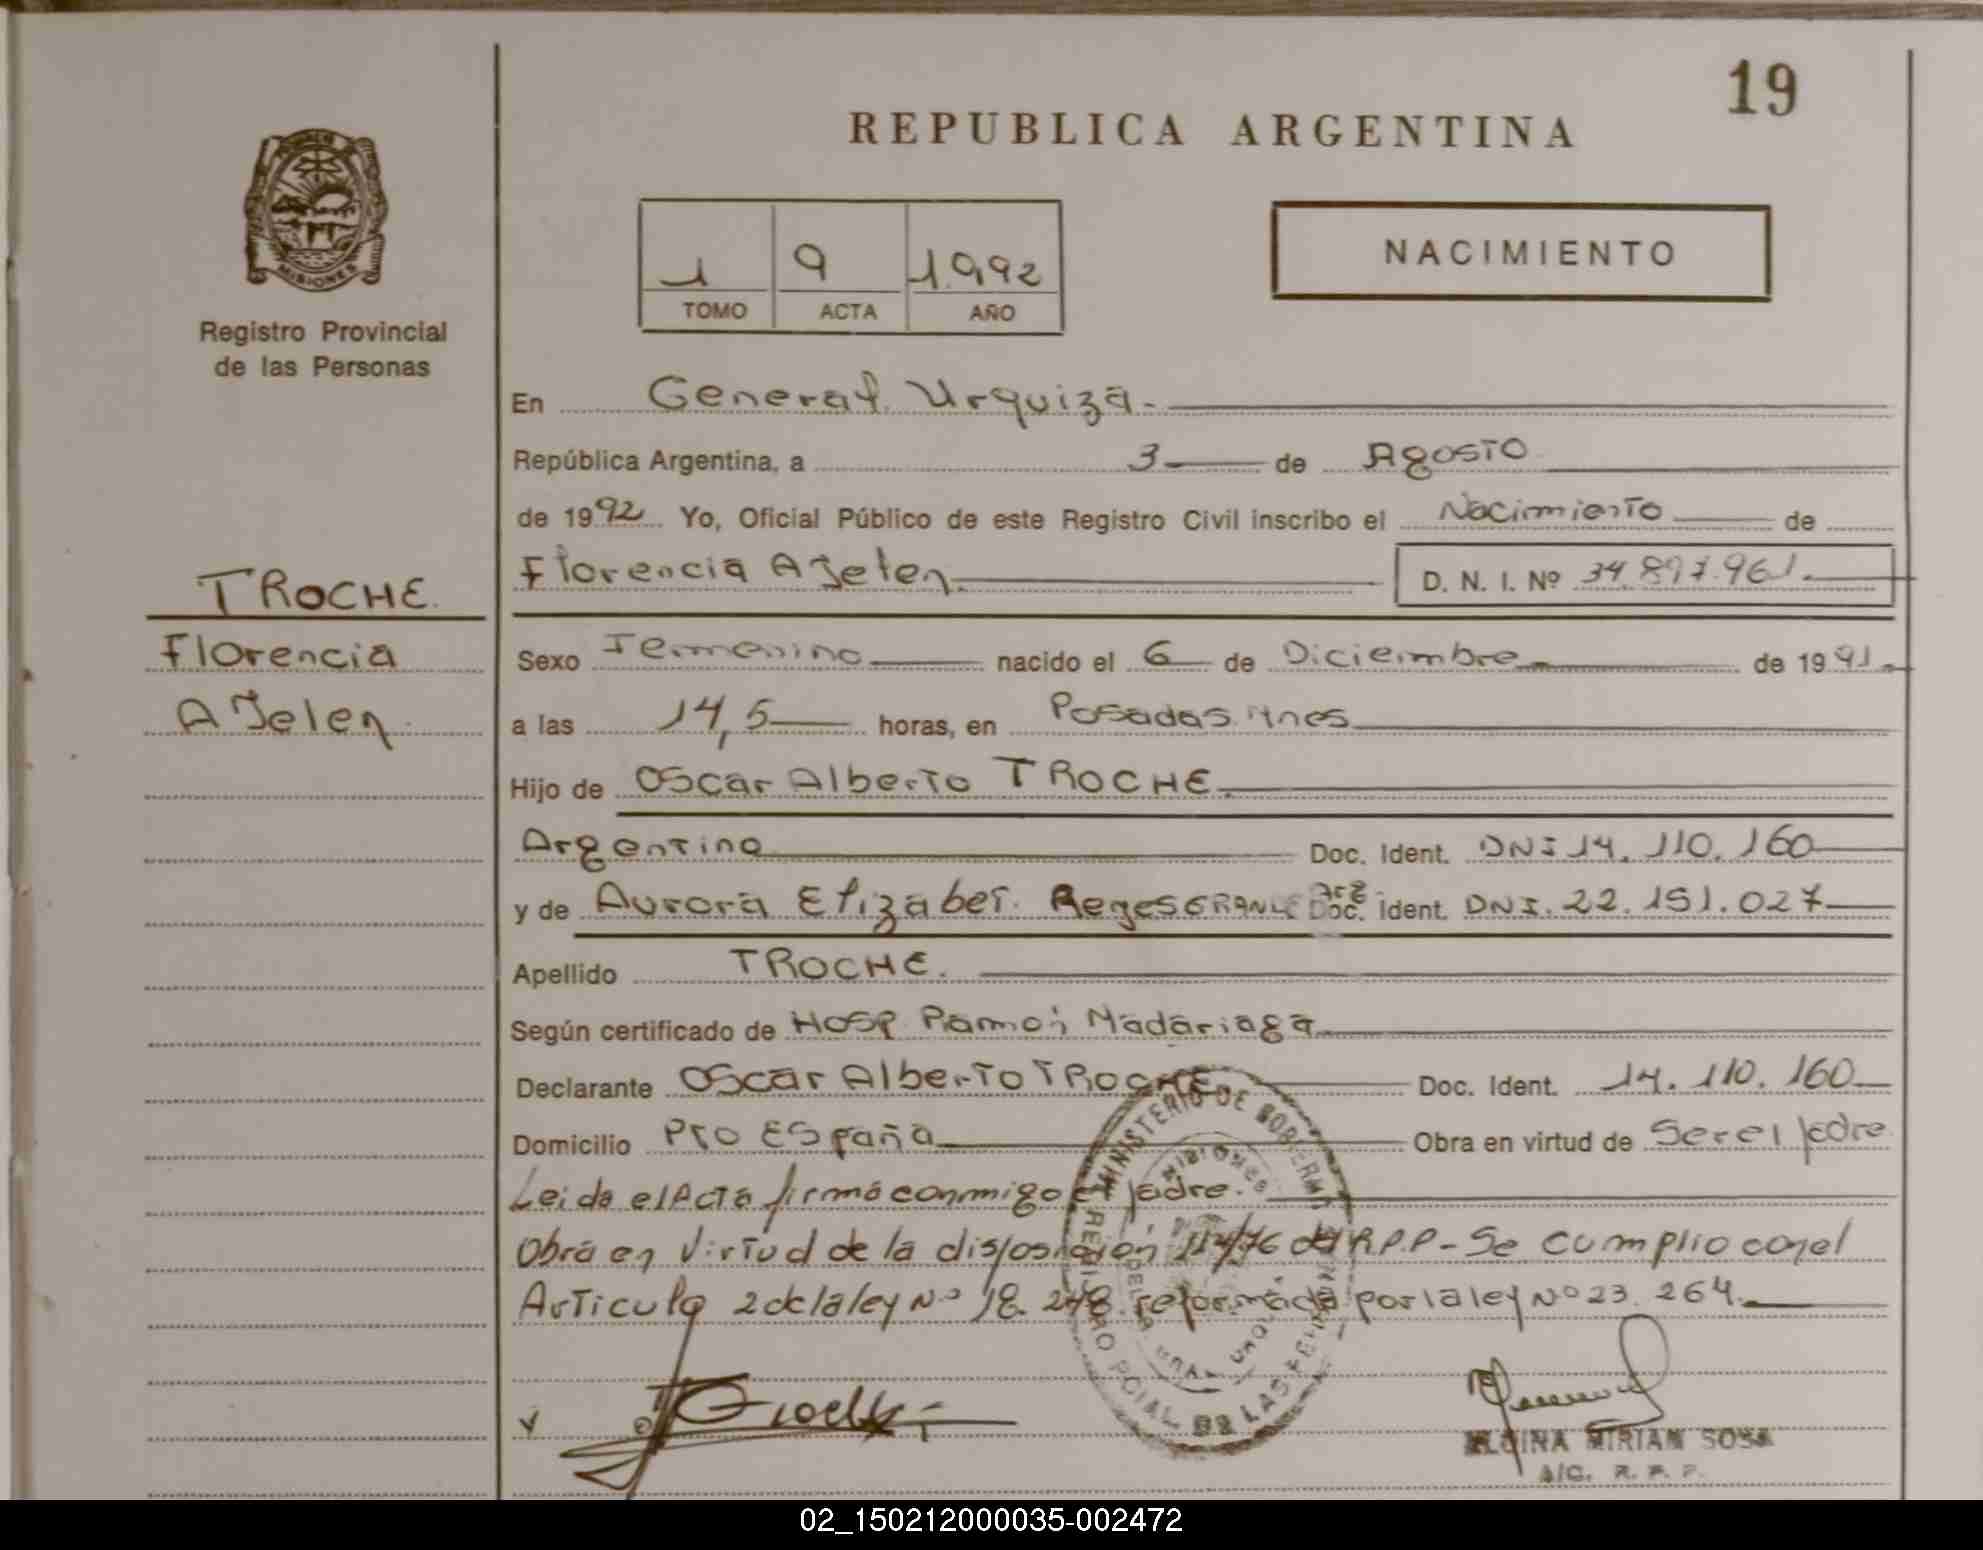 19
REPUBLICA ARGENTINA
MISIONES
Registro Provincial
de las Personas
1 9 1.992
TOMO ACTA AÑO
NACIMIENTO
En General Urquiza.-
República Argentina, a 3 de Agosto
de 1992 Yo, Oficial Público de este Registro Civil inscribo el Nacimiento de
Florencia AJelen D. N. I. Nº 34.897.961.
TROCHE.
Florencia
AJelen
Sexo Femenino nacido el 6 de Diciembre de 1991.
a las 14,5 horas, en Posadas Mnes
Hijo de Oscar Alberto TROCHE.
Argentino Doc. Ident. DNI 14.110.160
y de Aurora Elizabet Arg Doc. Ident. DNI. 22.151.027
Apellido TROCHE.
Según certificado de Hosp. Ramon Madariaga
Declarante Oscar Alberto TROCHE Doc. Ident. 14.110.160
Domicilio Pto España Obra en virtud de Ser el padre
Leida el Acta firma conmigo el padre.
Obra en virtud de la disposicion 112/76 del R.P.P- Se cumplio con el
Articulo 2 de la ley Nº 18.248 reformada por la ley Nº 23.264.
MINISTERIO DE GOBIERNO
MISIONES
MIRIAN SOSA
A/C. R. P. P.
02_150212000035-002472